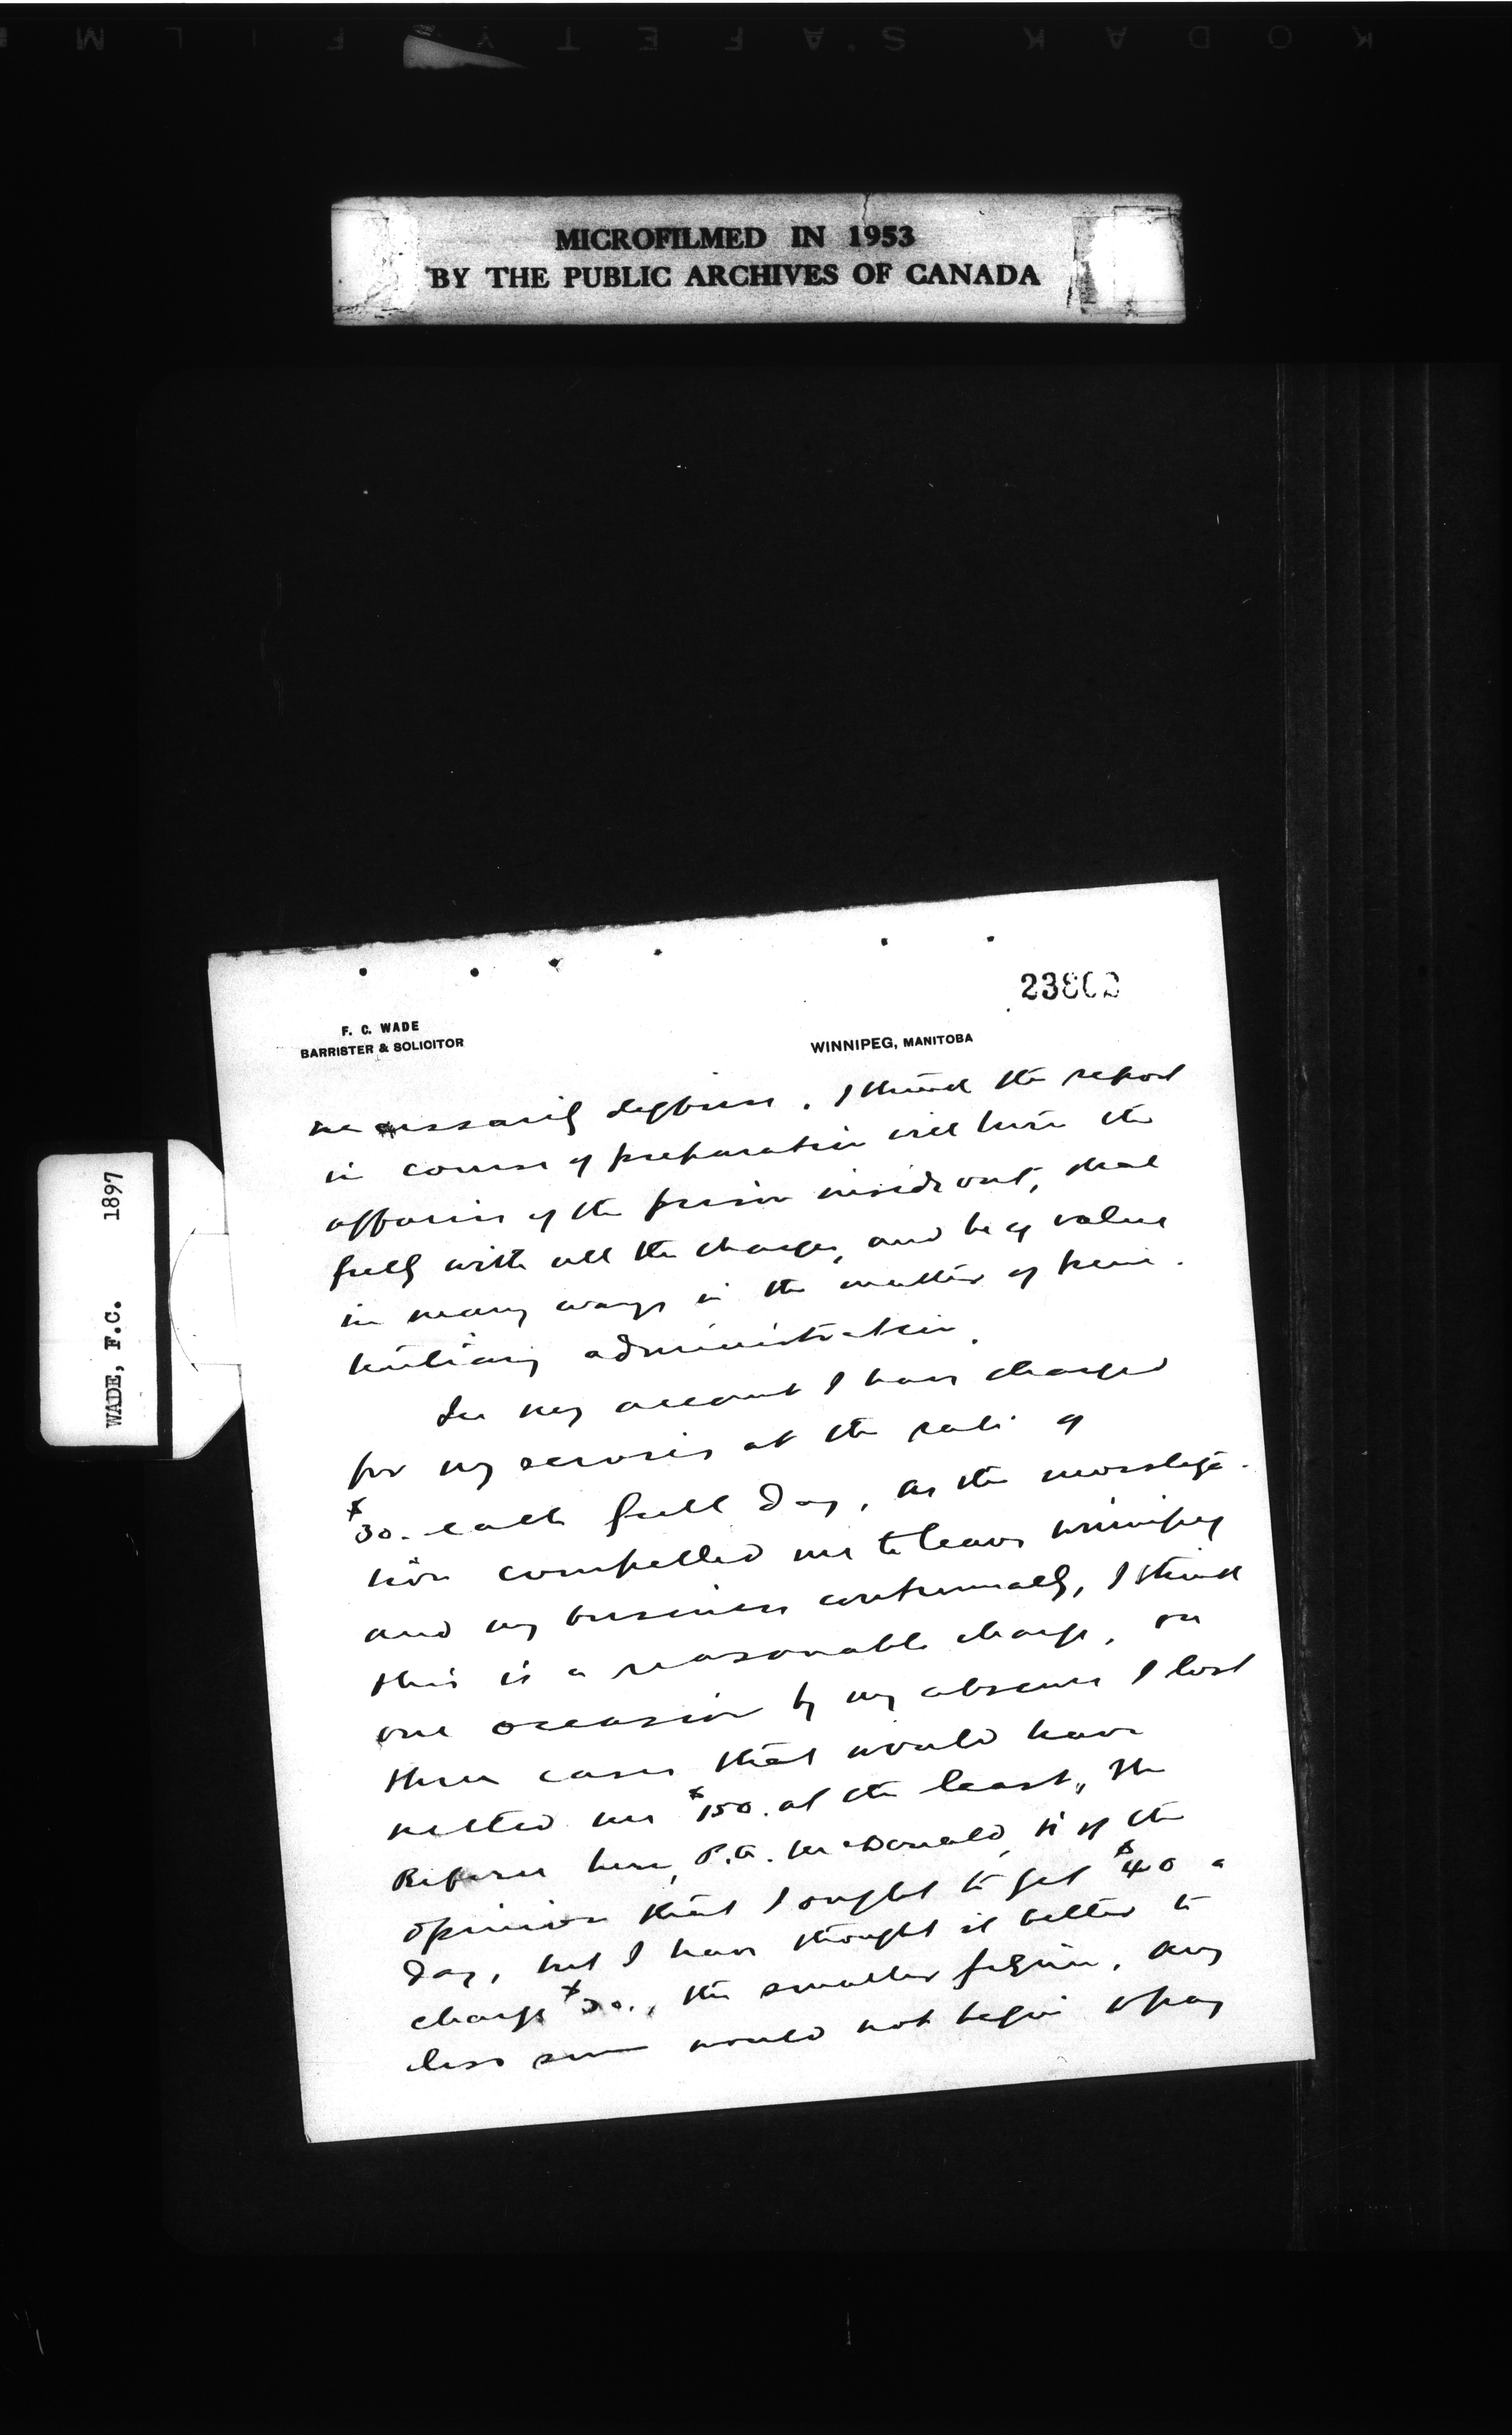 KODAK SAFETY FILM
MICROFILMED IN 1953
BY THE PUBLIC ARCHIVES OF CANADA
WADE, F.C. 1897
F. C. WADE
BARRISTER & SOLICITOR
WINNIPEG, MANITOBA
necessarily I think the report
in course of preparation will turn the
affairs of the prison inside out, deal
fully with all the charges, and be of value
in many ways in the matter of peni-
tentiary administration.
In my account I have charged
for my services at the rate of
$30. each full day. As the investiga-
tion compelled me to leave Winnipeg
and my business continually, I think
this is a reasonable charge. On
one occasion by my absence I lost
three cases that would have
netted me $150. at the least. The
Referee here, P.A. McDonald, is of the
opinion that I ought to get $40 a
day, but I have thought it better to
charge $30., the smaller figure. Any
less sum would not begin to pay